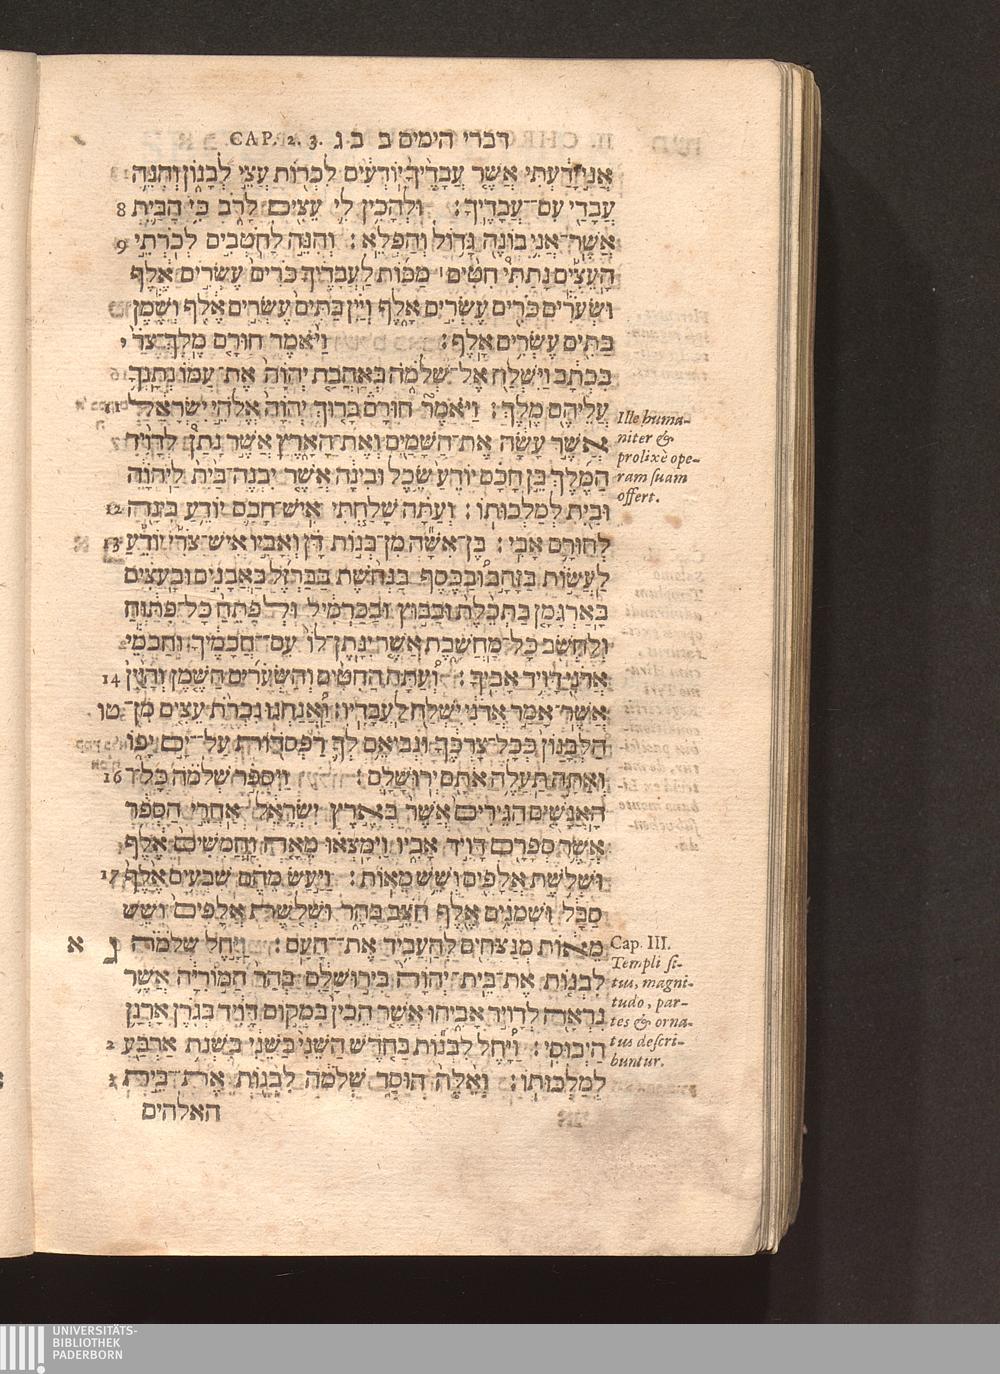 CAP. 2. 3. דברי הימים ב ב.ג
אֲנִי יָדַעְתִּי אֲשֶׁר עֲבָדֶיךָ יוֹדְעִים לִכְרוֹת עֲצֵי לְבָנוֹן וְהִנֵּה
8 עֲבָדַי עִם־עֲבָדֶיךָ׃ וּלְהָכִין לִי עֵצִים לָרֹב כִּי הַבַּיִת
9 אֲשֶׁר־אֲנִי בוֹנֶה גָּדוֹל וְהַפְלֵא׃ וְהִנֵּה לַחֹטְבִים לְכֹרְתֵי
הָעֵצִים נָתַתִּי חִטִּים׀ מַכּוֹת לַעֲבָדֶיךָ כֹּרִים עֶשְׂרִים אֶלֶף
וּשְׂעֹרִים כֹּרִים עֶשְׂרִים אָלֶף וְיַיִן בַּתִּים עֶשְׂרִים אֶלֶף וְשֶׁמֶן
י בַּתִּים עֶשְׂרִים אָלֶף׃ וַיֹּאמֶר חוּרָם מֶלֶךְ־צֹר
בִּכְתָב וַיִּשְׁלַח אֶל־שְׁלֹמֹה בְּאַהֲבַת יְהוָה אֶת־עַמּוֹ נְתָנְךָ
11 עֲלֵיהֶם מֶלֶךְ׃ וַיֹּאמֶר חוּרָם בָּרוּךְ יְהוָה אֱלֹהֵי יִשְׂרָאֵל
אֲשֶׁר עָשָׂה אֶת־הַשָּׁמַיִם וְאֶת־הָאָרֶץ אֲשֶׁר נָתַן לְדָוִיד
הַמֶּלֶךְ בֵּן חָכָם יוֹדֵעַ שֵׂכֶל וּבִינָה אֲשֶׁר יִבְנֶה־בַּיִת לַיהוָה
12 וּבַיִת לְמַלְכוּתוֹ׃ וְעַתָּה שָׁלַחְתִּי אִישׁ־חָכָם יוֹדֵעַ בִּינָה
13 לְחוּרָם אָבִי׃ בֶּן־אִשָּׁה מִן־בְּנוֹת דָּן וְאָבִיו אִישׁ־צֹרִי יוֹדֵעַ
לַעֲשׂוֹת בַּזָּהָב וּבַכֶּסֶף בַּנְּחֹשֶׁת בַּבַּרְזֶל בָּאֲבָנִים וּבָעֵצִים
בָּאַרְגָּמָן בַּתְּכֵלֶת וּבַבּוּץ וּבַכַּרְמִיל וּלְפַתֵּחַ כָּל־פִּתּוּחַ
וְלַחְשֹׁב כָּל־מַחֲשָׁבֶת אֲשֶׁר יִנָּתֶן־לוֹ עִם־חֲכָמֶיךָ וְחַכְמֵי
14 אֲדֹנִי דָּוִיד אָבִיךָ׃ וְעַתָּה הַחִטִּים וְהַשְּׂעֹרִים הַשֶּׁמֶן וְהַיַּיִן
טו אֲשֶׁר אָמַר אֲדֹנִי יִשְׁלַח לַעֲבָדָיו׃ וַאֲנַחְנוּ נִכְרֹת עֵצִים מִן־
הַלְּבָנוֹן כְּכָל־צָרְכֶּךָ וּנְבִיאֵם לְךָ רַפְסֹדוֹת עַל־יָם יָפוֹ
16 וְאַתָּה תַּעֲלֶה אֹתָם יְרוּשָׁלִָם׃ וַיִּסְפֹּר שְׁלֹמֹה כָּל־
הָאֲנָשִׁים הַגֵּירִים אֲשֶׁר בְּאֶרֶץ יִשְׂרָאֵל אַחֲרֵי הַסְּפָר
אֲשֶׁר סְפָרָם דָּוִיד אָבִיו וַיִּמָּצְאוּ מֵאָה וַחֲמִשִּׁים אֶלֶף
17 וּשְׁלֹשֶׁת אֲלָפִים וְשֵׁשׁ מֵאוֹת׃ וַיַּעַשׂ מֵהֶם שִׁבְעִים אֶלֶף
סַבָּל וּשְׁמֹנִים אֶלֶף חֹצֵב בָּהָר וּשְׁלֹשֶׁת אֲלָפִים וְשֵׁשׁ
א ג מֵאוֹת מְנַצְּחִים לְהַעֲבִיד אֶת־הָעָם׃ וַיָּחֶל שְׁלֹמֹה
לִבְנוֹת אֶת־בֵּית־יְהוָה בִּירוּשָׁלִַם בְּהַר הַמּוֹרִיָּה אֲשֶׁר
נִרְאָה לְדָוִיד אָבִיהוּ אֲשֶׁר הֵכִין בִּמְקוֹם דָּוִיד בְּגֹרֶן אָרְנָן
2 הַיְבוּסִי׃ וַיָּחֶל לִבְנוֹת בַּחֹדֶשׁ הַשֵּׁנִי בַּשֵּׁנִי בִּשְׁנַת אַרְבַּע
3 לְמַלְכוּתוֹ׃ וְאֵלֶּה הוּסַד שְׁלֹמֹה לִבְנוֹת אֶת־בֵּית
האלהים
Ille huma-
niter &
prolixè ope-
ram suam
offert.
Cap. III.
Templi si-
tus, magni-
tudo, par-
tes & orna-
tus descri-
buntur.
UNIVERSITÄTS-
BIBLIOTHEK
PADERBORN